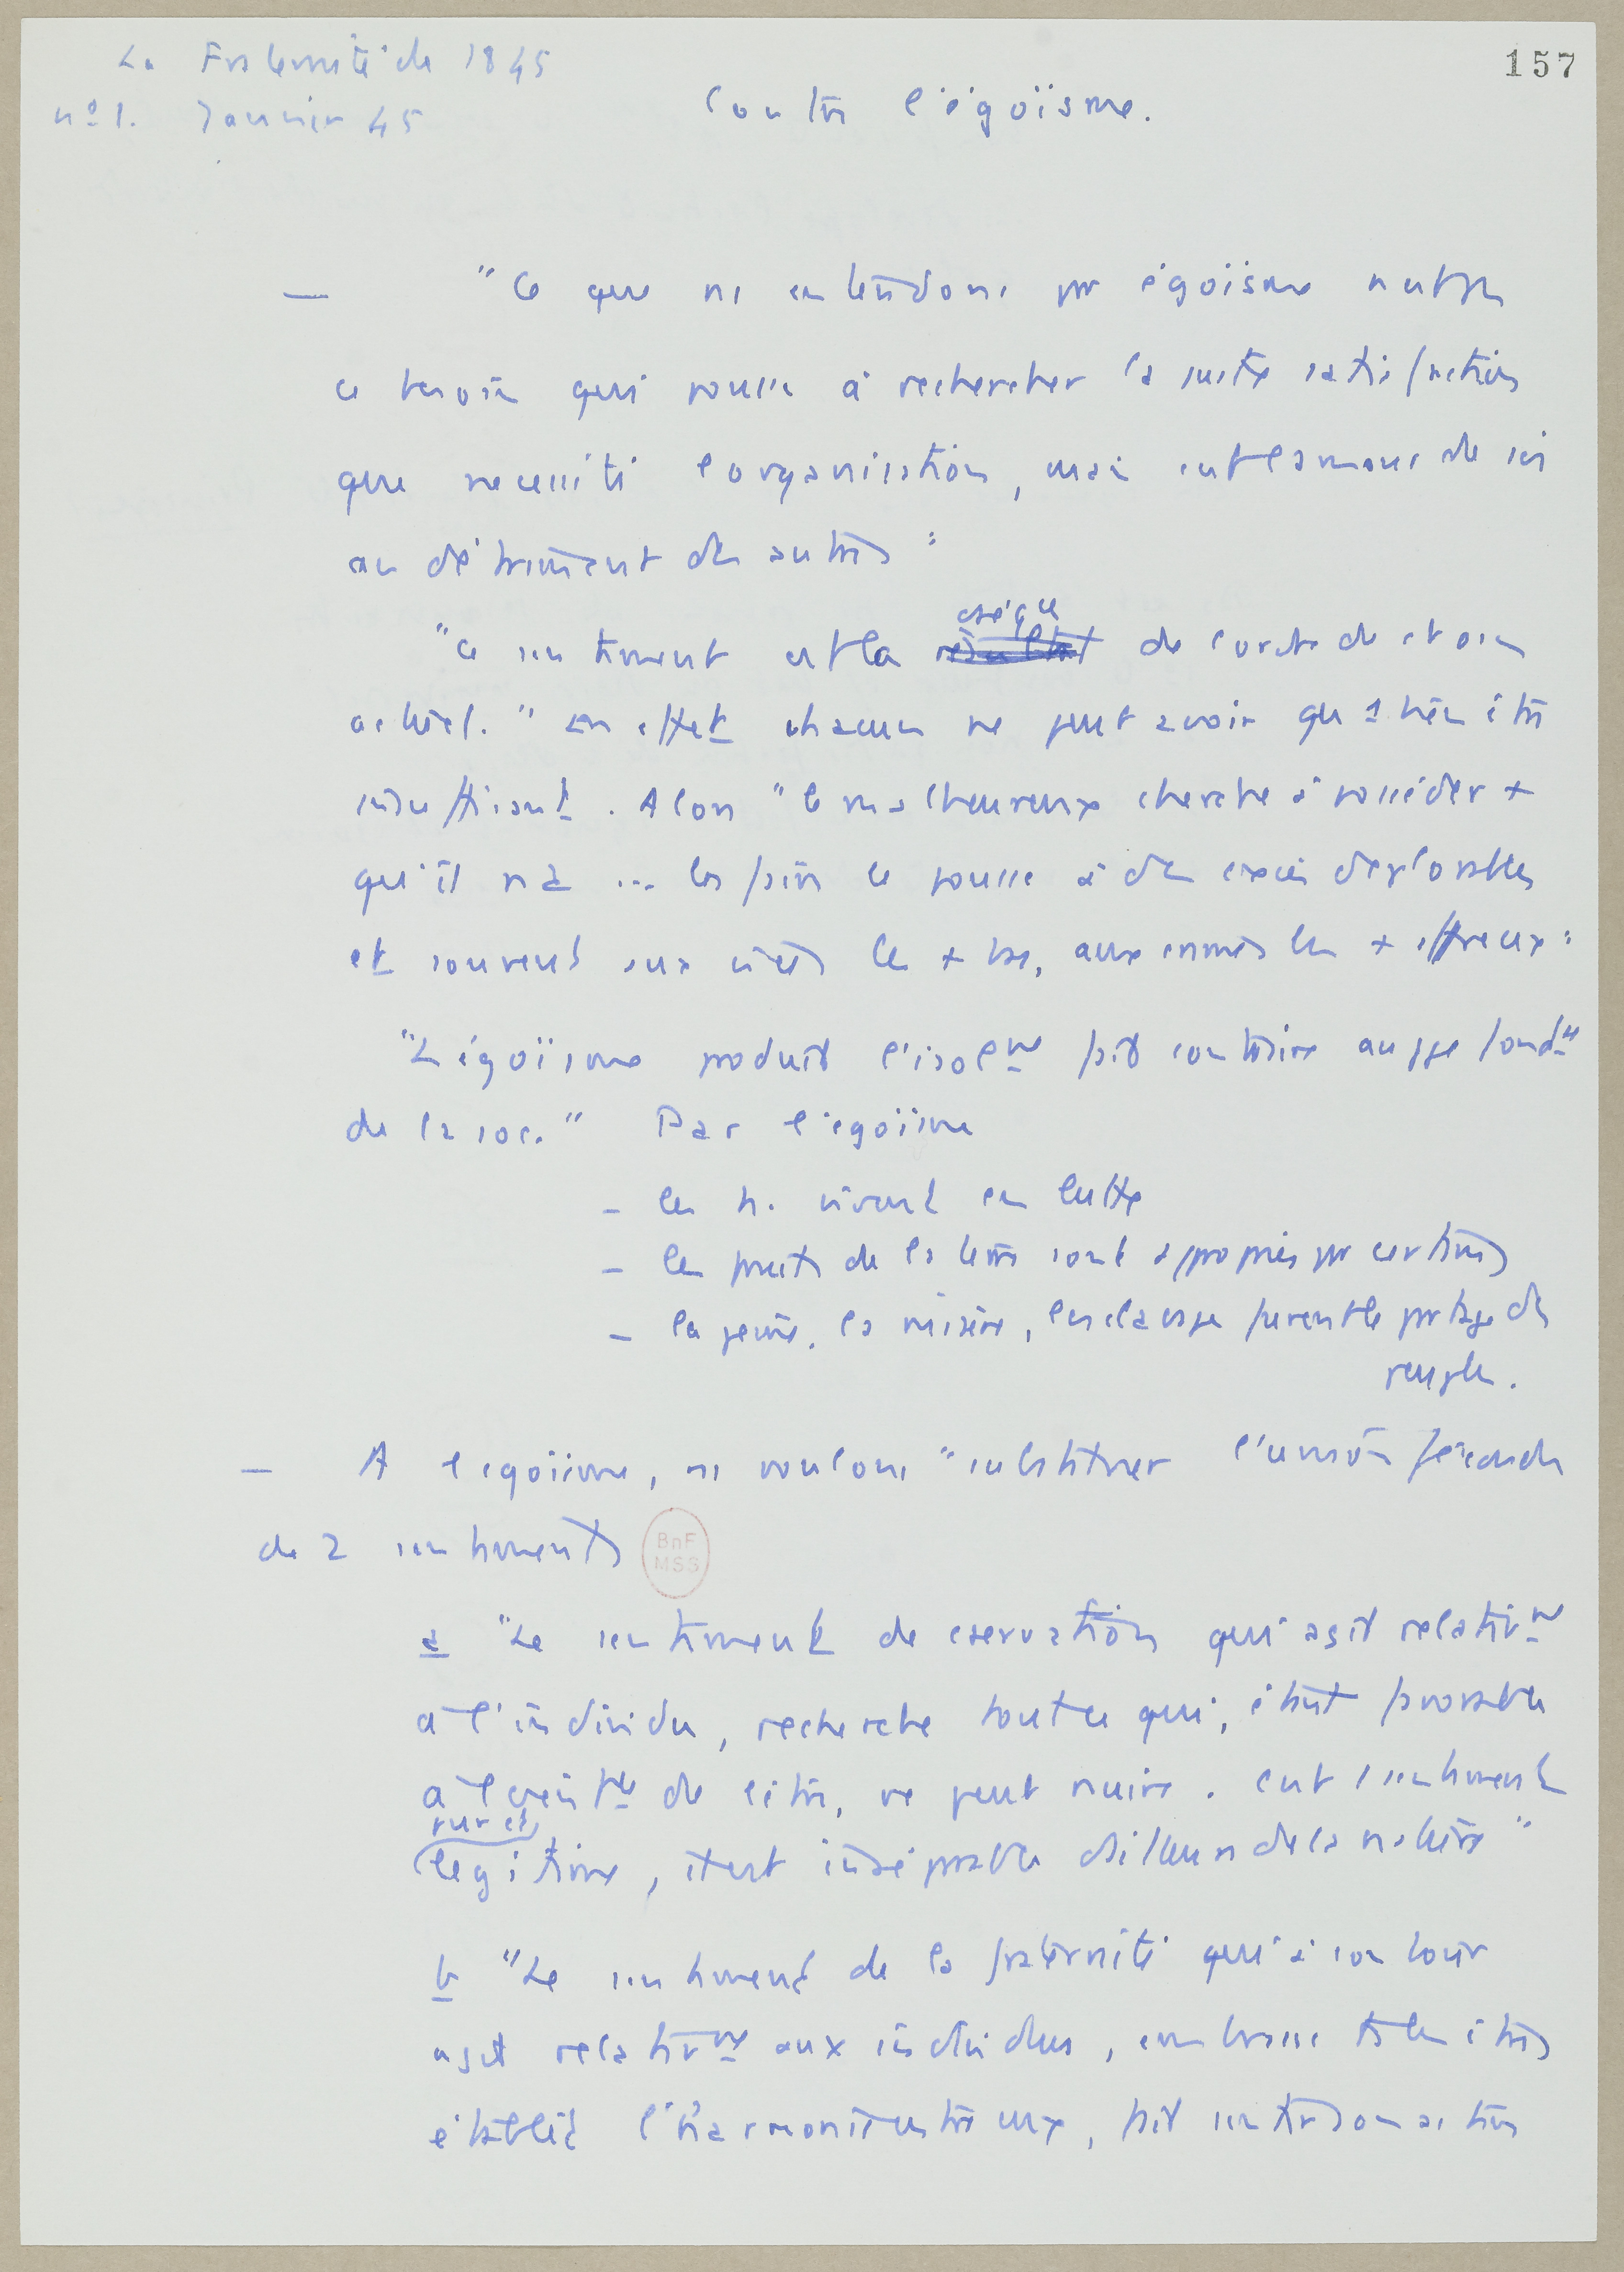 La Fraternité de 1845
157
n° 1. Janvier 45
Contre l'égoïsme.
— "Ce que ns entendons par égoïsme n'est pas
ce besoin qui pousse à rechercher la juste satisfaction
que nécessite l'organisation, mais c'est l'amour de soi
au détriment des autres"
"Ce sentiment est la résultat cséqce de l'ordre de choses
actuel." En effet chacun ne peut avoir qu'1 bien être
insuffisant. Alors "le malheureux cherche à posséder +
qu'il n'a ... les faim le pousse à des excès déplorables
et souvent aux vices les + bas, aux crimes les + affreux"
"L'égoïsme produit l'isolmt, fait contraire au ppe fondal
de la soc." Par l'égoïsme
- les h. vivent en lutte
- les fruits de la terre sont appropriés par certains
- la peine, la misère, l'esclavage furent le partage des
peuples.
— A l'égoïsme, ns voulons "substituer l'union féconde
de 2 sentiments
BnF
MSS
a "Le sentiment de cservation qui agit relativmt
à l'individu, recherche tout ce qui, étant favorable
à l'existce de l'être, ne peut nuire. C'est 1 sentiment
pur et
légitime, il est inséparable d'ailleurs de la nature"
b "Le sentiment de la fraternité qui à son tour
agit relativmt aux individus, embrasse ts les êtres
établit l'harmonie entre eux, fait